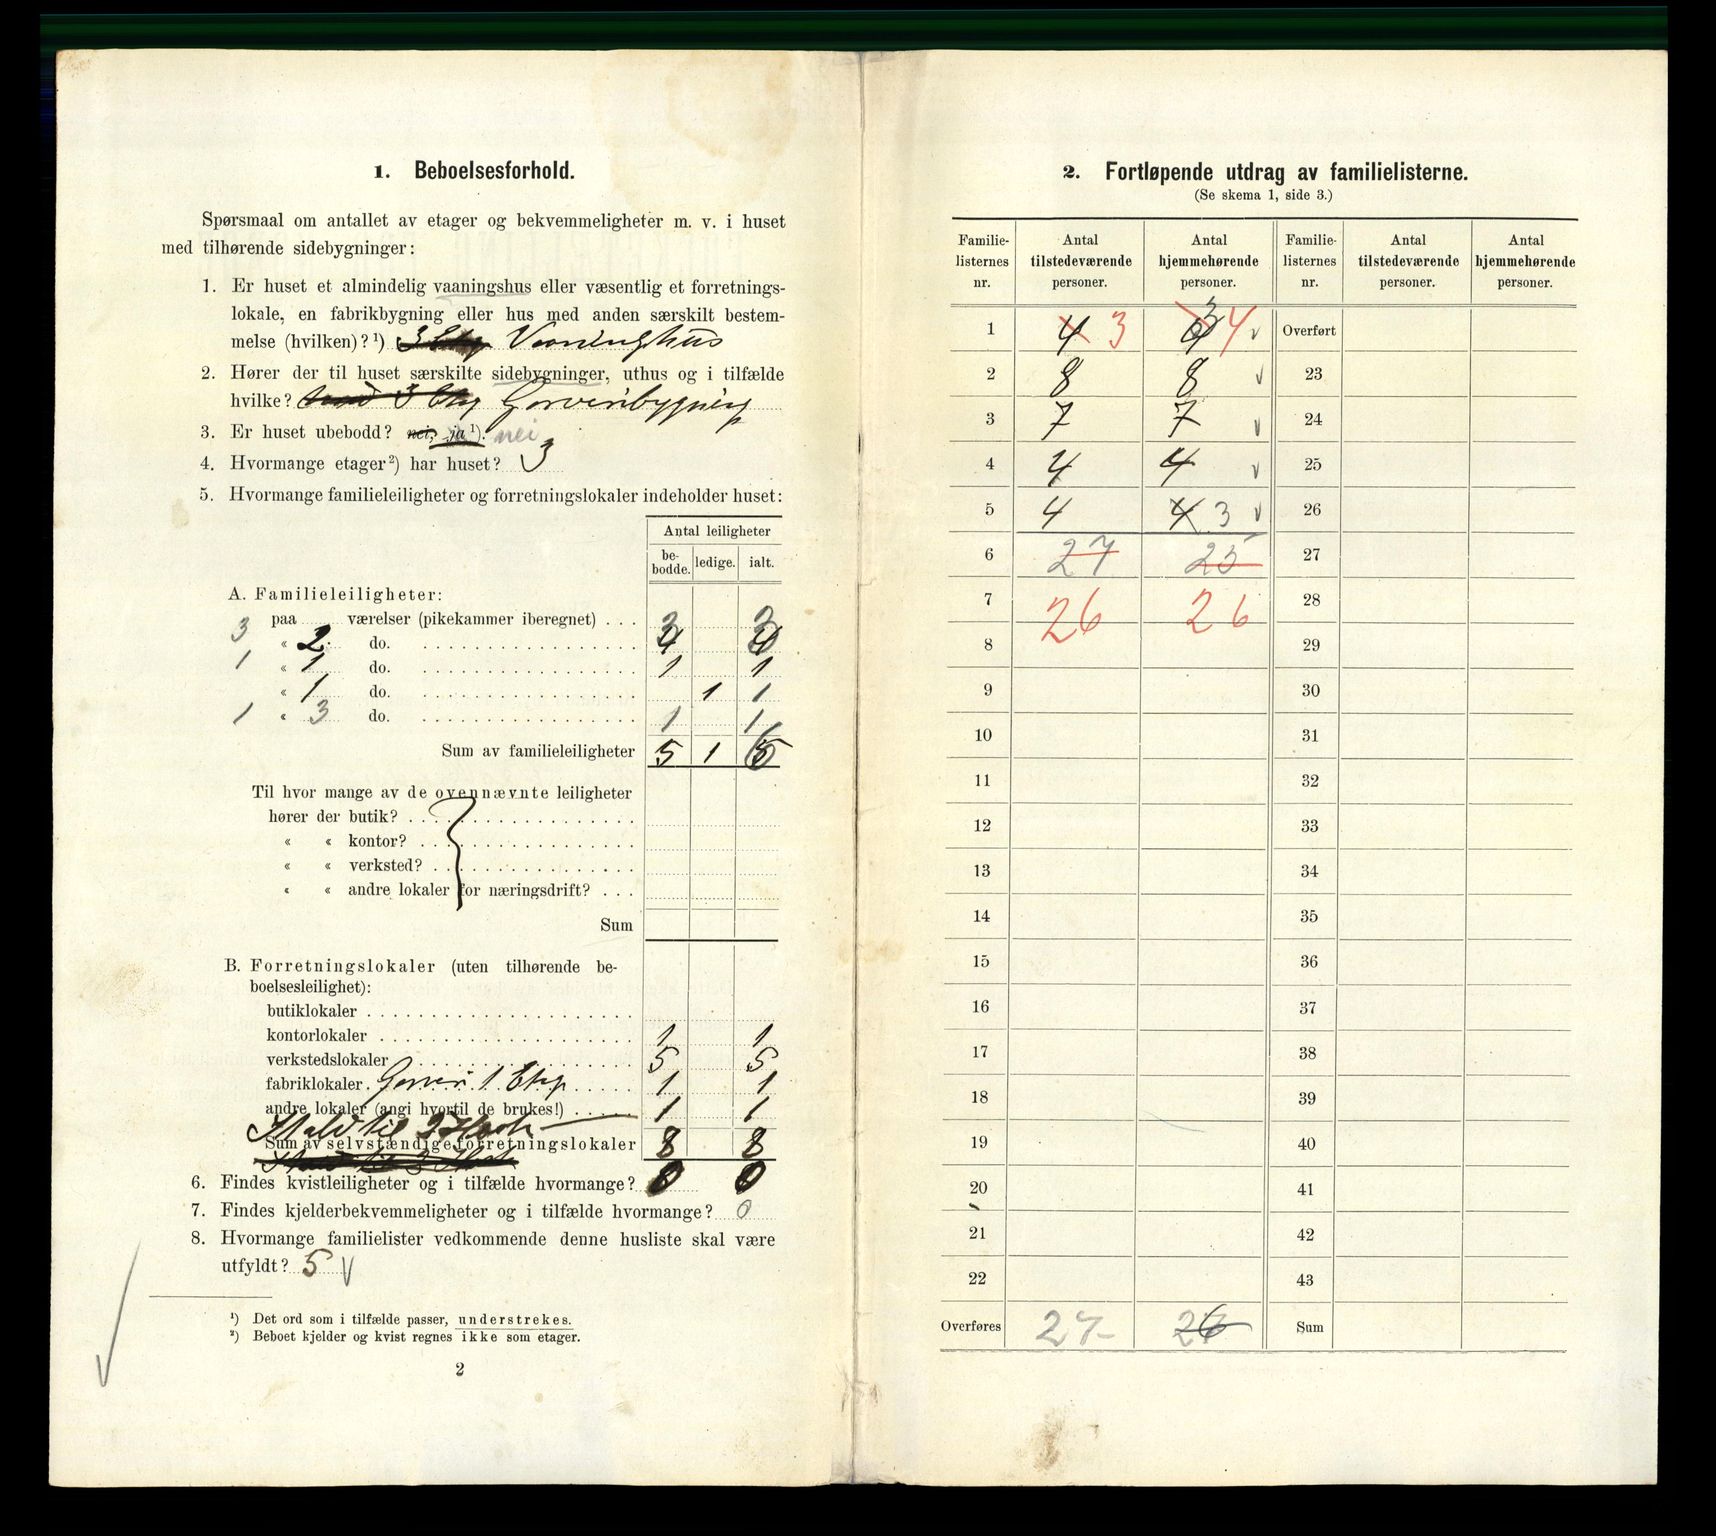 1. Beboelsesforhold.
Spørsmaal om antallet av etager og bekvemmeligheter m. v. i huset
med tilhørende sidebygninger:
1. Er huset et almindelig vaaningshus eller væsentlig et forretnings-
lokale, en fabrikbygning eller hus med anden særskilt bestem-
melse (hvilken)? ¹) Vaaningshus
2. Hører der til huset særskilte sidebygninger, uthus og i tilfælde
hvilke? Garveribygning
3. Er huset ubebodd? nei, ja ¹). nei
4. Hvormange etager ²) har huset? 3
5. Hvormange familieleiligheter og forretningslokaler indeholder huset:
Antal leiligheter
be-bodde. ledige. ialt.
A. Familieleiligheter:
paa værelser (pikekammer iberegnet) . . .
3 « 2 do. 4 3 4 3
1 « 1 do. 1 1
« 1 do. 1 1
1 « 3 do. 1 1
Sum av familieleiligheter 5 1 6
Til hvor mange av de ovennævnte leiligheter
hører der butik?
« « kontor?
« « verksted?
« « andre lokaler for næringsdrift? . . .
Sum
B. Forretningslokaler (uten tilhørende be-
boelsesleilighet):
butiklokaler
kontorlokaler 1 1
verkstedslokaler 5 5
fabriklokaler. Garveri 1 Etg 1 1
andre lokaler (angi hvortil de brukes!) 1 1
Stald til 2 Heste
Sum av selvstændige forretningslokaler 8 8
6. Findes kvistleiligheter og i tilfælde hvormange? 0 0
7. Findes kjelderbekvemmeligheter og i tilfælde hvormange? 0
8. Hvormange familielister vedkommende denne husliste skal være
utfyldt? 5 v
¹) Det ord som i tilfælde passer, understrekes.
²) Beboet kjelder og kvist regnes ikke som etager.
2
2. Fortløpende utdrag av familielisterne.
(Se skema 1, side 3.)
Familie-listernes nr. Antal tilstedeværende personer. Antal hjemmehørende personer. Familie-listernes nr. Antal tilstedeværende personer. Antal hjemmehørende personer.
1 4 3 3 4 v Overført
2 8 8 v 23
3 7 7 v 24
4 4 4 v 25
5 4 4 3 v 26
6 27 25 27
7 26 26 28
8 29
9 30
10 31
11 32
12 33
13 34
14 35
15 36
16 37
17 38
18 39
19 40
20 41
21 42
22 43
Overføres 27 26 Sum